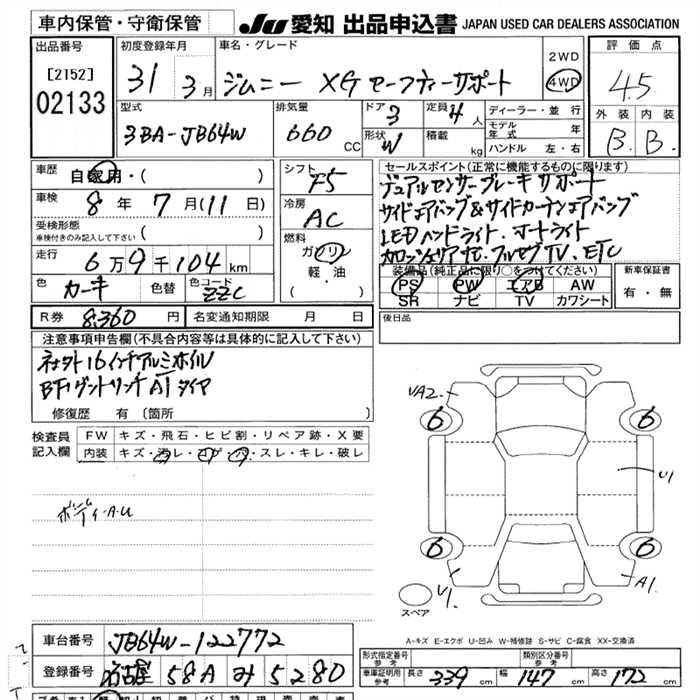 車内保管・守衛保管
JU 愛知 出品申込書 JAPAN USED CAR DEALERS ASSOCIATION
出品番号
[2152]
02133
初度登録年月
31 3月
車名・グレード
ジムニー XG セーフティーサポート
2WD
4WD
評価点
4.5
外装 内装
B. B.
型式
3BA-JB64W
排気量
660 cc
ドア 3
形状 W
定員 4 人
積載 kg
ディーラー・並行
モデル年式 年
ハンドル 左・右
車歴
自家用・( )
車検
8年 7月(11日)
受検形態
車検付きのみ記入して下さい( )
走行
6万9千104km
色 カーキ 色替 色コード ZZC
シフト F5
冷房 AC
燃料
ガソリン
軽・油
( )
セールスポイント(正常に機能するものに限ります)
デュアルセンサーブレーキサポート
サイドエアバッグ&サイドカーテンエアバッグ
LEDハンドライト、オートライト
フルセグTV、ETC
装備品(純正品に限り○をつけてください)
PS PW エアB AW
SR ナビ TV カワシート
新車保証書
有・無
R券 8,360円 名変通知期限 月 日
後日品
注意事項申告欄(不具合内容等は具体的に記入して下さい)
社外16インチアルミホイル
タイヤ
修復歴 有〔箇所 〕
検査員記入欄
FW キズ・飛石・ヒビ割・リペア跡・X要
内装 キズ・汚レ・コゲ・穴・スレ・キレ・破レ
ボディ・AU
UA2
6 6
U1
6 6
U1.
A1.
スペア
A-キズ E-エクボ U-凹み W-補修跡 S-サビ C-腐食 XX-交換済
車台番号 JB64W-122772
登録番号 名古屋 58A み 5280
形式指定番号 参考
類別区分番号 参考
車庫証明用 参考 長さ 339 cm 幅 147 cm 高さ 172 cm